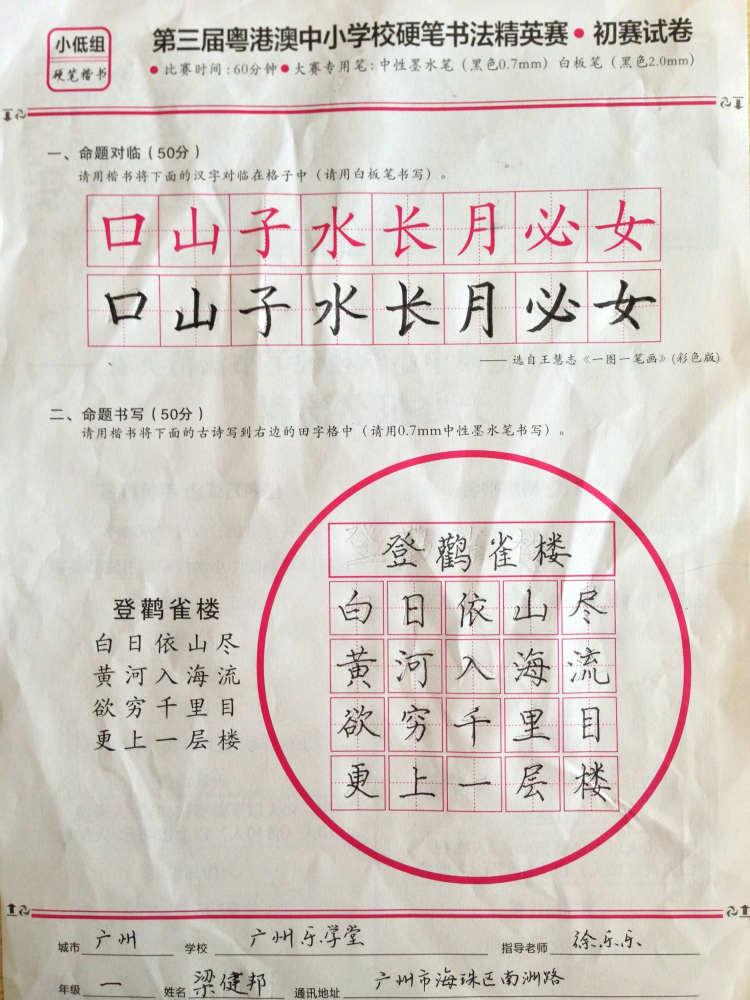 小低组
硬笔楷书
第三届粤港澳中小学校硬笔书法精英赛•初赛试卷
•比赛时间:60分钟•大赛专用笔:中性墨水笔（黑色0.7mm）白板笔（黑色2.0mm）
一、命题对临（50分）
请用楷书将下面的汉字对临在格子中（请用白板笔书写）。
口山子水长月必女
口山子水长月必女
—— 选自王慧志《一图一笔画》(彩色版)
二、命题书写（50分）
请用楷书将下面的古诗写到右边的田字格中（请用0.7mm中性墨水笔书写）。
登鹳雀楼
白日依山尽
黄河入海流
欲穷千里目
更上一层楼
登鹳雀楼
白日依山尽
黄河入海流
欲穷千里目
更上一层楼
城市 广州 学校 广州乐学堂 指导老师 徐乐乐
年级 一 姓名 梁健邦 通讯地址 广州市海珠区南洲路